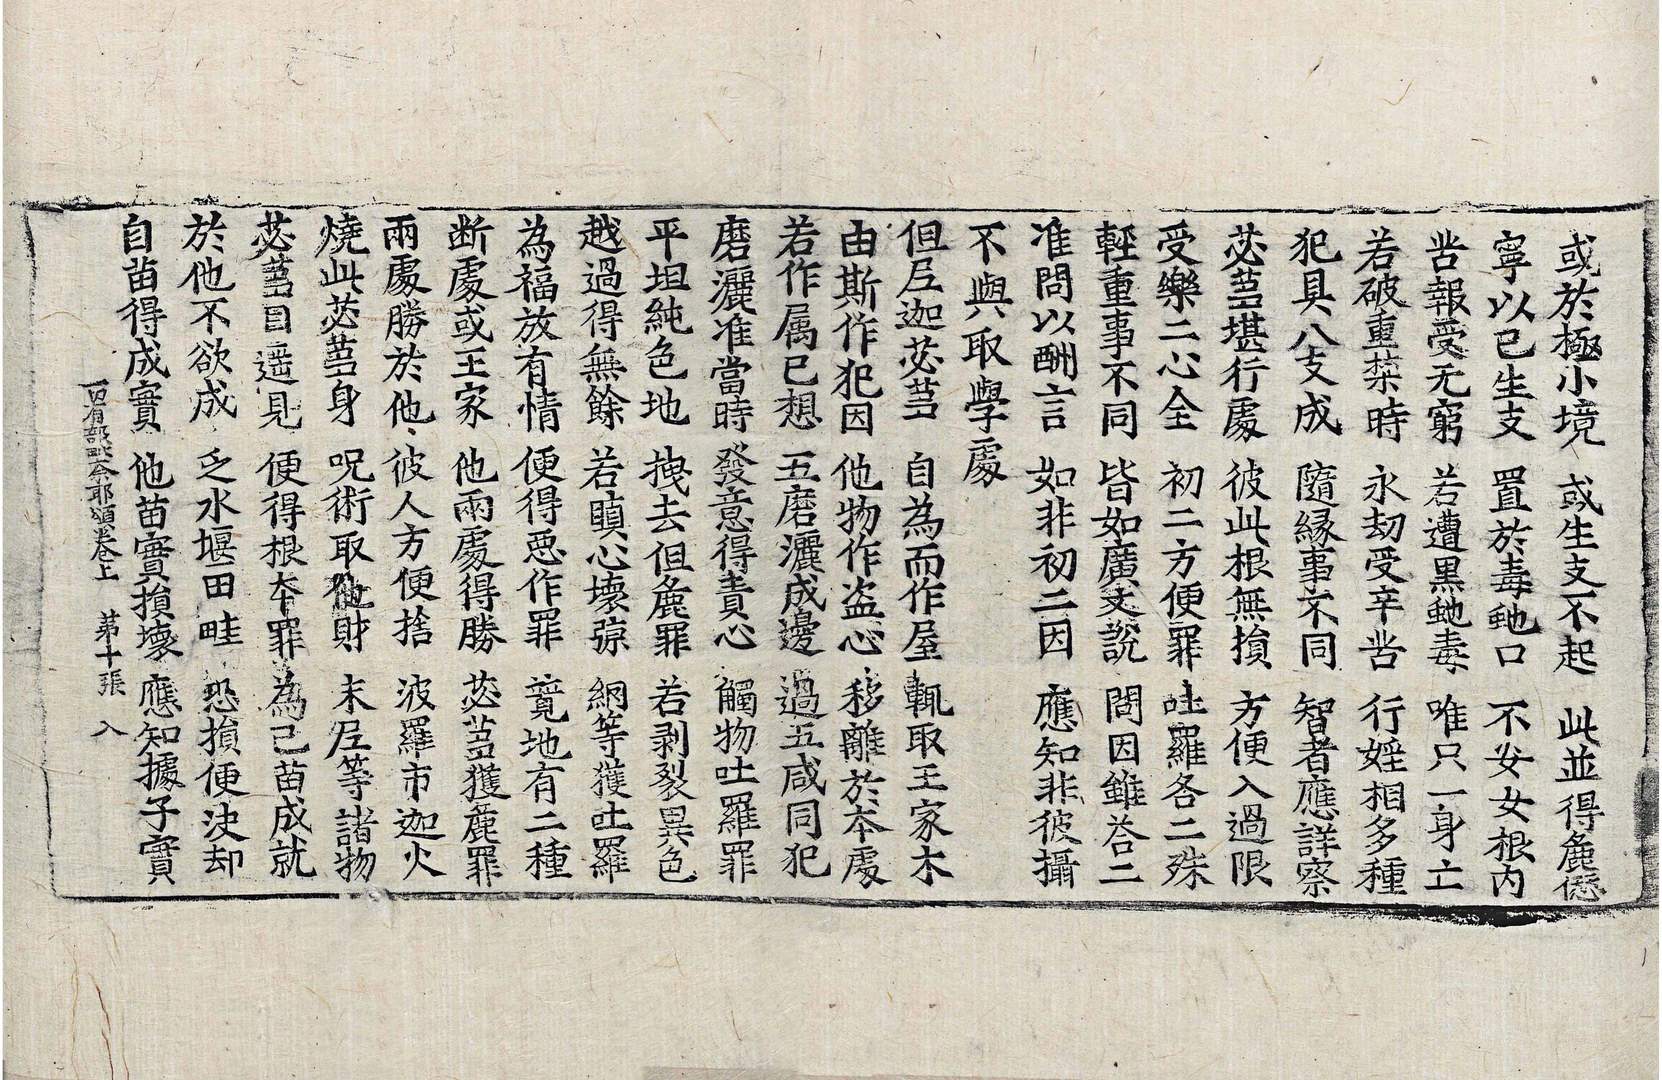 或於極小境 或生支不起 此並得麁愆
寧以已生支 置於毒虵口 不安女根內
苦報受无窮 若遭黒虵毒 唯只一身亡
若破重禁時 永劫受辛苦 行婬相多種
犯具八支成 隨縁事不同 智者應詳察
苾蒭堪行處 彼此根無損 方便入過限
受樂二心全 初二方便罪 吐羅各二殊
輕重事不同 皆如廣文說 問因雖荅二
准問以酬言 如非初二因 應知非彼攝
不與取學處
但尼迦苾蒭 自為而作屋 輒取王家木
由斯作犯因 他物作盗心 移離於本處
若作属已想 五磨灑成邊 過五咸同犯
磨灑准當時 發意得責心 觸物吐羅罪
平坦純色地 拽去但麁罪 若剥裂異色
越過得無餘 若瞋心壞弶 網等獲吐羅
為福放有情 便得惡作罪 竟地有二種
断處或王家 他兩處得勝 苾蒭獲麁罪
兩處勝於他 彼人方便捨 波羅市迦火
燒此苾蒭身 呪術取他財 末尼等諸物
苾蒭目遥見 便得根本罪 為己苗成就
於他不欲成 乏水堰田畦 恐損便決却
自苗得成實 他苗實損壞 應知據子實
百有部毗奈耶頌卷上 第十張 入